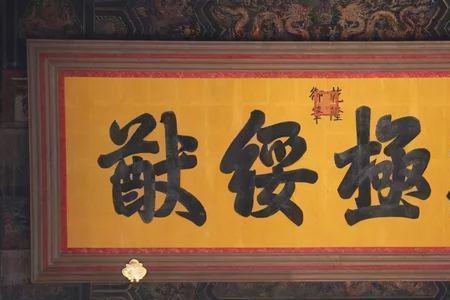 極綏猷
乾隆
御筆